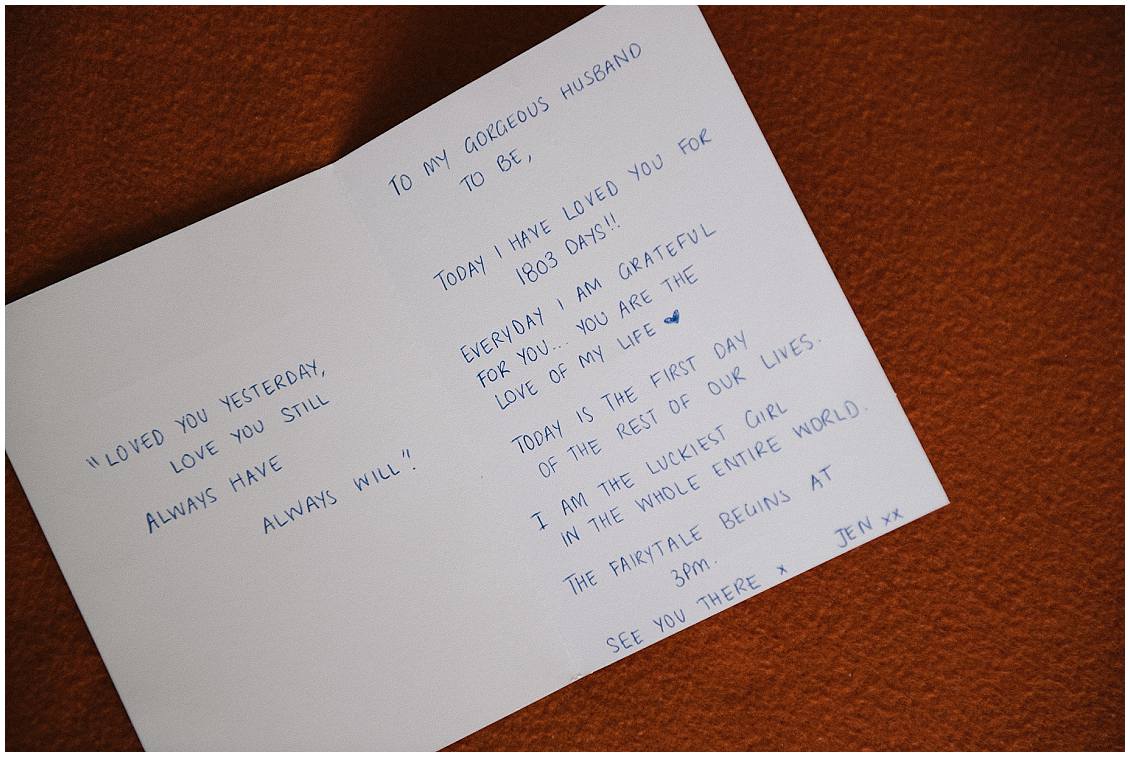 "LOVED YOU YESTERDAY,
LOVE YOU STILL
ALWAYS HAVE
ALWAYS WILL".
TO MY GORGEOUS HUSBAND
TO BE,
TODAY I HAVE LOVED YOU FOR
1803 DAYS!!
EVERYDAY I AM GRATEFUL
FOR YOU... YOU ARE THE
LOVE OF MY LIFE ♥
TODAY IS THE FIRST DAY
OF THE REST OF OUR LIVES.
I AM THE LUCKIEST GIRL
IN THE WHOLE ENTIRE WORLD.
THE FAIRYTALE BEGINS AT
3PM.
SEE YOU THERE x
JEN xx